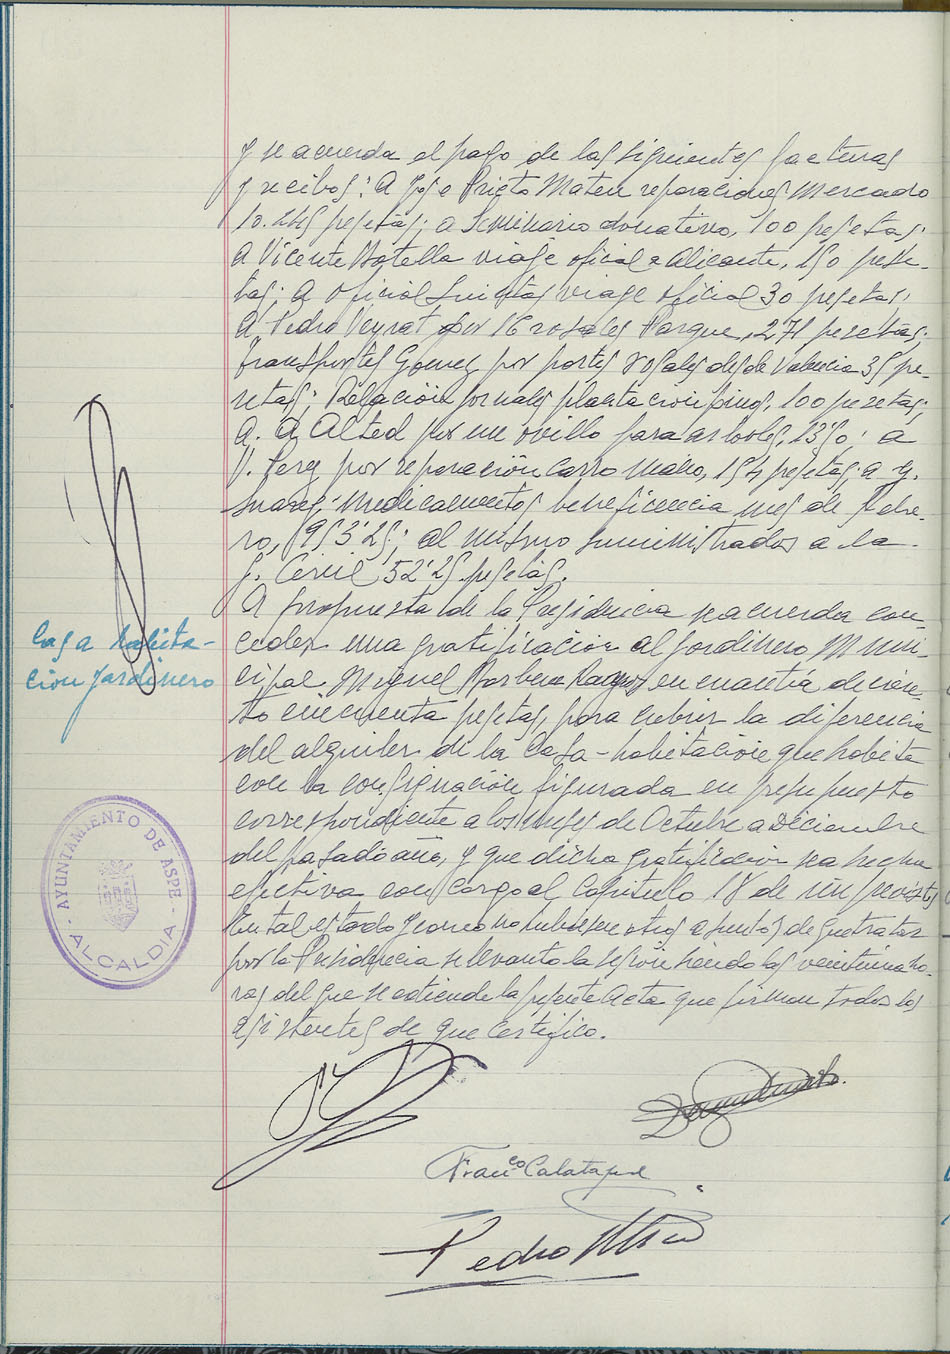 y se acuerda el pago de las siguientes facturas
y recibos: A José Prieto Mateu reparaciones Mercado
pesetas; a Seminario donativo, 100 pesetas;
a Vicente Botella viaje oficial a Alicante, 150 pese-
tas; a oficial Quintas viaje oficial 30 pesetas;
a Pedro Veyrat por 16 rosales Parque, 271 pesetas;
transportes Gomez por portes rosales desde Valencia 35 pe-
setas; Relación jornales plantación pinos, 100 pesetas;
a. A. Alted por un ovillo para arboles, 13'50; a
V. Perez por reparación Carro mano, 154 pesetas; a G.
Suarez medicamentos beneficencia mes de Febre-
ro, 1953'25; al mismo suministrados a la
G. Civil 52'25 pesetas.
A propuesta de la Presidencia se acuerda con-
ceder una gratificación al jardinero Muni-
cipal Miguel en cuantia de cien-
to cincuenta pesetas, para cubrir la diferencia
del alquiler de la Casa-habitación que habita
con la consignación figurada en presupuesto
correspondiente a los meses de Octubre a Diciembre
del pasado año, y que dicha gratificación sea hecha
efectiva con cargo al Capitulo 18 de imprevistos
En tal estado y como no hubiesen otros asuntos de que tratar
por la Presidencia se levantó la sesión siendo las veintiuna ho-
ras del que se extiende la presente Acta que firman todos los
asistentes de que certifico.
Casa habita-
ción jardinero
AYUNTAMIENTO DE ASPE
ALCALDIA
Fran.co Calatayud
Pedro